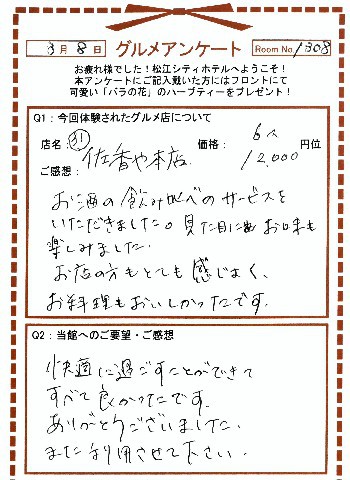 3月8日 グルメアンケート Room No. 1308
お疲れ様でした!松江シティホテルへようこそ!
本アンケートにご記入戴いた方にはフロントにて
可愛い「バラの花」のハーブティーをプレゼント!
Q1:今回体験されたグルメ店について
店名:㉛ 佐香や本店 価格: 6人 12,000 円位
ご感想:
お酒の飲み比べのサービスを
いただきました。見た目にもお味も
楽しみました.
お店の方もとても感じよく、
お料理もおいしかったです.
Q2:当館へのご要望・ご感想
快適に過ごすことができて
すべて良かったです.
ありがとうございました.
また利用させて下さい.